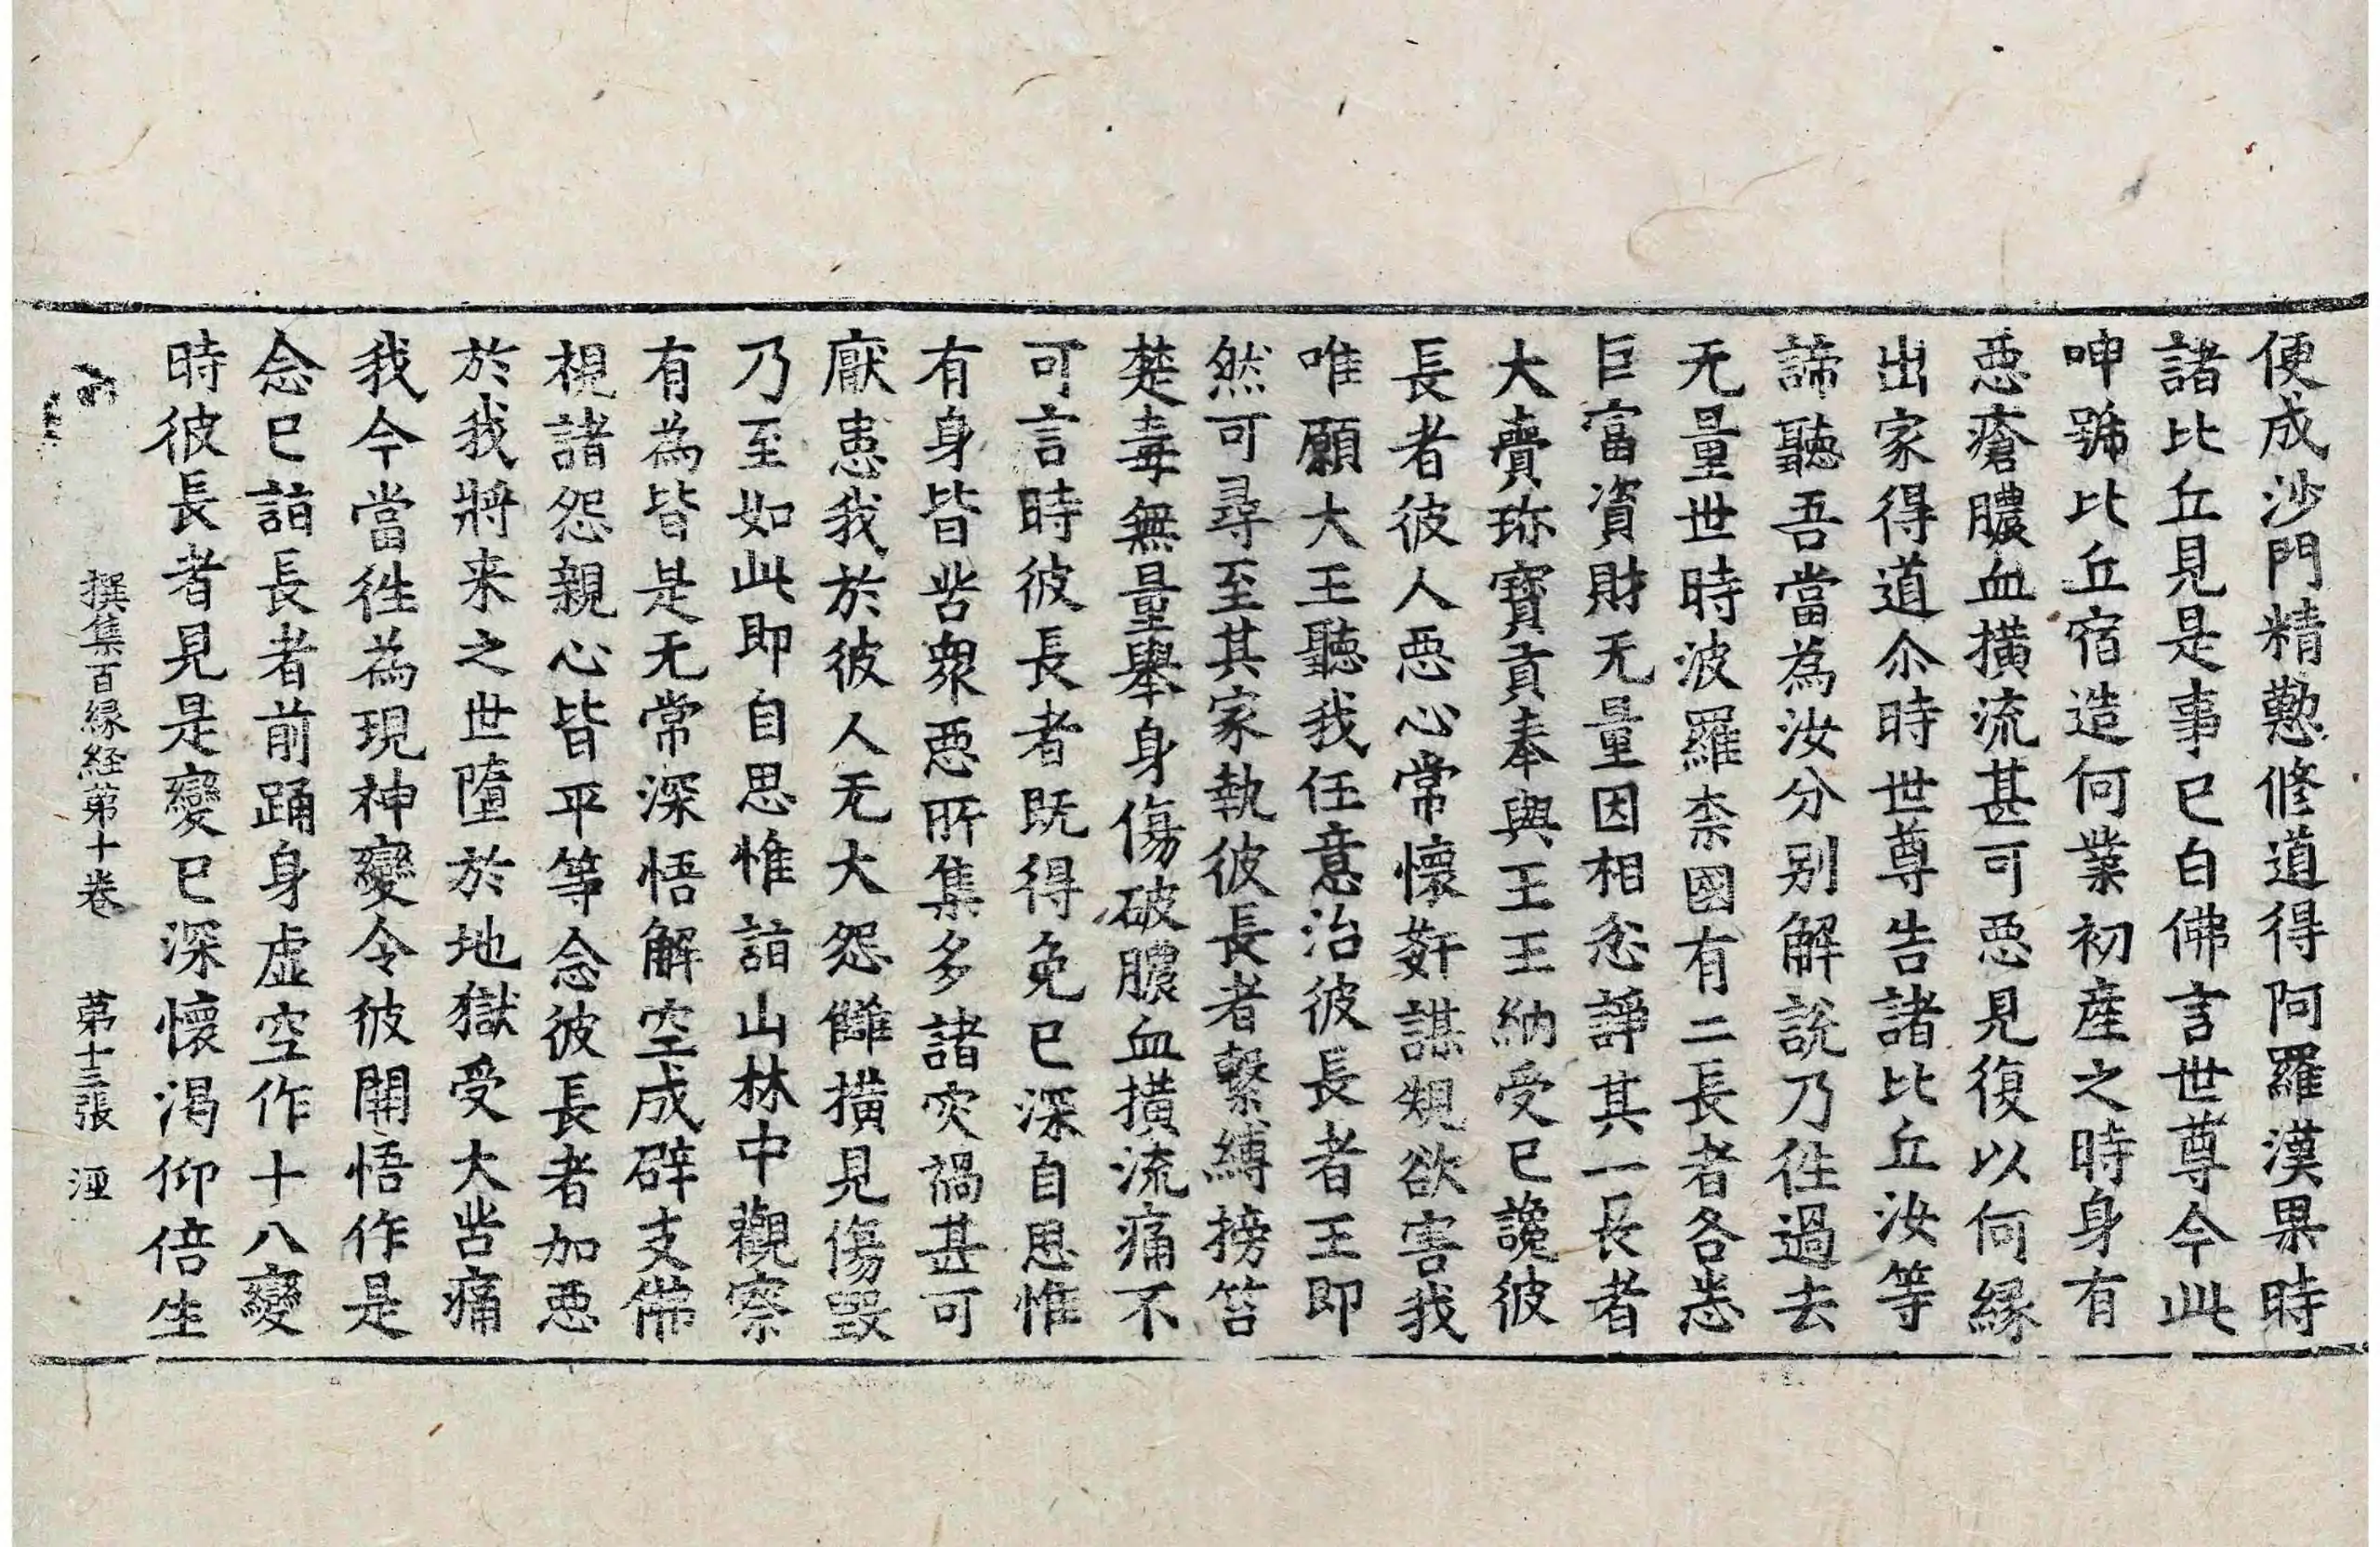 便成沙門精懃修道得阿羅漢果時
諸比丘見是事已白佛言世尊今此
呻號比丘宿造何業初産之時身有
惡瘡膿血撗流甚可惡見復以何緣
出家得道尒時世尊告諸比丘汝等
諦聽吾當為汝分別解說乃徃過去
无量世時波羅柰國有二長者各悉
巨富資財无量因相忿諍其一長者
大賷珎寶貢奉與王王納受已讒彼
長者彼人惡心常懷姧謀䂓欲害我
唯願大王聽我任意治彼長者王即
然可尋至其家執彼長者繫縛搒笞
楚毒無量舉身傷破膿血撗流痛不
可言時彼長者既得免已深自思惟
有身皆苦衆惡所集多諸灾禍甚可
厭患我於彼人无大怨讎撗見傷毀
乃至如此即自思惟詣山林中觀察
有為皆是无常深悟解空成辟支佛
視諸怨親心皆平等念彼長者加惡
於我將来之世墮於地獄受大苦痛
我今當徃為現神變令彼開悟作是
念已詣長者前踊身虛空作十八變
時彼長者見是變已深懷渴仰倍生
撰集百緣経第十卷 第十三張 洭